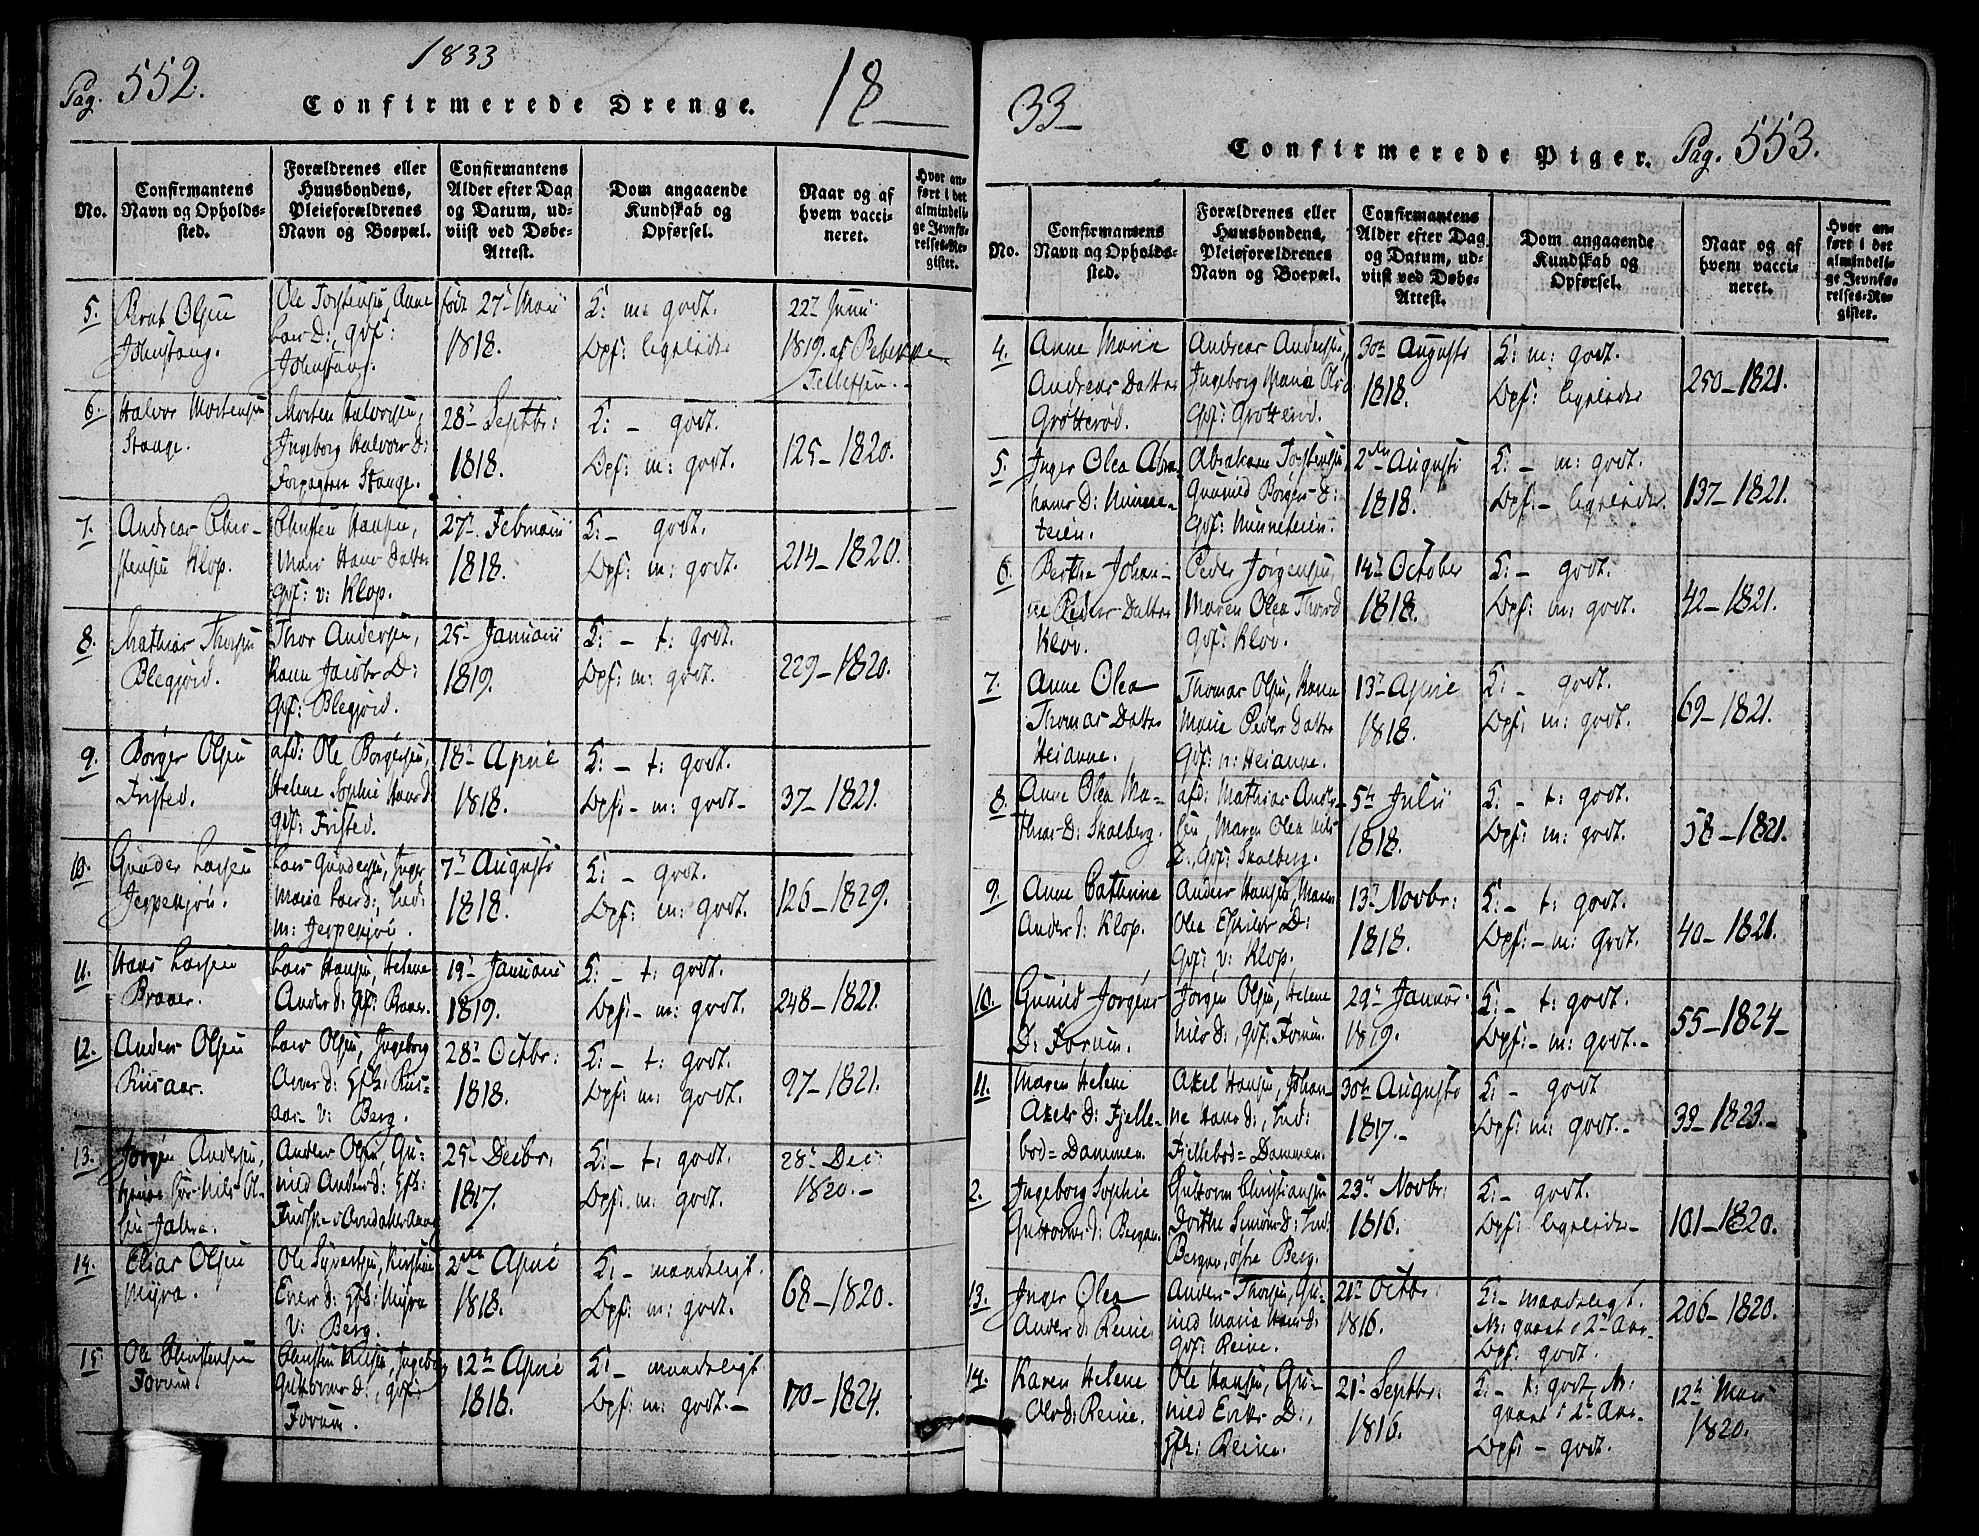 Pag. 552.
1833
Confirmerede Drenge.
18
No.
Confirmantens
Navn og Opholds-
sted.
Forældrenes eller
Huusbondens,
Pleieforældrenes
Navn og Boepæl.
Confirmantens
Alder efter Dag
og Datum, ud-
viist ved Døbe-
Attest.
Dom angaaende
Kundskab og
Opførsel.
Naar og af
hvem vacci-
neret.
Hvor an-
ført i det
almindeli-
ge Jevnfø-
relses-Re-
gister.
5.
Olsen
Ole Torstensen, Anne
Lars D:, Gdf:
født 27de
1818.
K: m: godt.
Opf: ligeledes
22de Junii
1819. af
6.
Halvor Mortensen
Stange.
Morten Halvorsen,
Ingeborg Halvors D:
Forpagter Stange.
28de Septbr:
1818.
K: – godt.
Opf: m: godt.
125–1820.
7.
Andreas Chri-
stensen Klop.
Christen Hansen,
Hans Datter
Gdf: v: Klop.
27de Februarii
1818.
K: – godt.
Opf: m: godt.
214–1820.
8.
Mathias Thorsen
Blegjord.
Thor Andersen,
Jacobs D:
Gdf: Blegjord.
25de Januarii
1819.
K: – t: godt.
Opf: m: godt.
229–1820.
9.
Børger Olsen
Fristed.
afd: Ole Børgersen,
Helene Sophie Hans D:
gdf: Fristed.
18de April
1818.
K: – t: godt.
Opf: – m: godt –
37–1821.
10.
Gunder Larsen
Lars Gundersen, Inger
Marie Lars D:, Ind:
7de Augusti
1818.
K: – godt.
Opf: m: godt.
126–1829.
11.
Hans Larsen
Braaer.
Lars Hansen, Helene
Anders D: Gf: Braaer.
19de Januarii
1819.
K: – t: godt.
Opf: – m: godt.
248–1821.
12.
Anders Olsen
Lars Olsen, Ingeborg
aar v: Berg.
28de Octbr:
1818.
K: – t: godt.
Opf: m: godt.
97–1821.
13.
Jørgen Andersen,
Anders Olsen, Gu-
nild Anders D:
25de Decbr:
1817.
K: – t: godt.
Opf: m: godt.
28de Dec:
1820.–
14.
Elias Olsen
Myra.
Ole Syvertsen, Kirstine
Evers D: Gfh: Myra
v: Berg.
2den April
1818.
K: – maadeligt.
Opf: m: godt.
68–1820.
15.
Ole Christensen
Forum.
Christen Nilsen, Ingeborg
Guttorms D:, Gdf:
Forum.
12te April
1818.
K: – maadeligt
Opf: m: godt. –
170–1824.
33
Confirmerede Piger.
Pag. 553.
No.
Confirmantens
Navn og Opholds-
sted.
Forældrenes eller
Huusbondens,
Pleieforældrenes
Navn og Boepæl.
Confirmantens
Alder efter Dag
og Datum, ud-
viist ved Døbe-
Attest.
Dom angaaende
Kundskab og
Opførsel.
Naar og af
hvem vacci-
neret.
Hvor an-
ført i det
almindeli-
ge Jevnfø-
relses-Re-
gister.
4.
Anne Marie
Andreas Datter
Grøtterød.
Andreas Andersen,
Ingeborg Maria Ols D
Gdf: Grøtterød.
30te Augusti
1818.
K: m: godt.
Opf: ligeledes
250–1821.
5.
Inger Olea Abra-
hams D:
Abraham Torstensen,
Gunnild Børgers D:
2den Augusti
1818.
K: – m: godt.
Opf: – ligeledes.
137–1821.
6.
Berthe Johan-
ne Peders Datter
Klov.
Peder Jørgensen,
Maren Olea Thors D
Gdf: Klov.
14de October
1818.
K: – godt.
Opf: m: godt.
42–1821.
7.
Anne Olea
Thomas Datter
Heianne.
Thomas Olsen,
Marie Peders Datter
Gdf: n: Heianne.
13de April
1818.
K: – godt.
Opf: m: godt.
69–1821.
8.
Anne Olea Ma-
thias D: Skalberg.
afd: Mathias Ander-
sen, Maren Olea Nils
D., Gdf: Skalberg.
5te Julii
1818.
K: – t: godt.
Opf: m: godt.
58–1821.
9.
Anne Cathrine
Anders D: Klop.
Anders Hansen, Maren
Olea Eskilds D:
Gdf: v: Klop.
13de Novbr:
1818.
K: – t: godt.
Opf: – m: godt.
40–1821.
10.
Gunild Jørgens
D: Forum.
Jørgen Olsen, Helene
Nils D:, Gdf: Forum.
29de Januar
1819.
K: – t: godt.
Opf: – m: godt. –
55–1824–
11.
Maren Helene
Axels D: Fjelle-
bod=Dammen.
Axel Hansen, Johan-
ne Hans D:, Ind:
Fjellebod=Dammen.
30te Augusti
1817.–
K: – godt
Opf: m: godt. –
39–1823.–
2.
Ingeborg Sophie
Guttorms D:
Guttorm Christiansen
Dorthe Simons D: Ind:
Bergan, østre Berg.
23de Novbr:
1816.
K: – godt.
Opf: ligeledes –
101–1820.
13.
Inger Olea
Anders D: Reine.
Anders Thorsen, Gu-
nild Maria Hans D:
Gdf: Reine.
21de Octbr:
1816.
K: – maadeligt.
N: gaaet i 2de Aar
Opf: godt.
206–1820.
14.
Karen Helene
Ols D: Reine.
Ole Hansen, Gu-
nild Eriks D:,
Gfh: Reine.
21de Septbr:
1816.
K: – t: godt, N:
gaaet i 2de Aar.
Opf: – godt.
12te
1820.